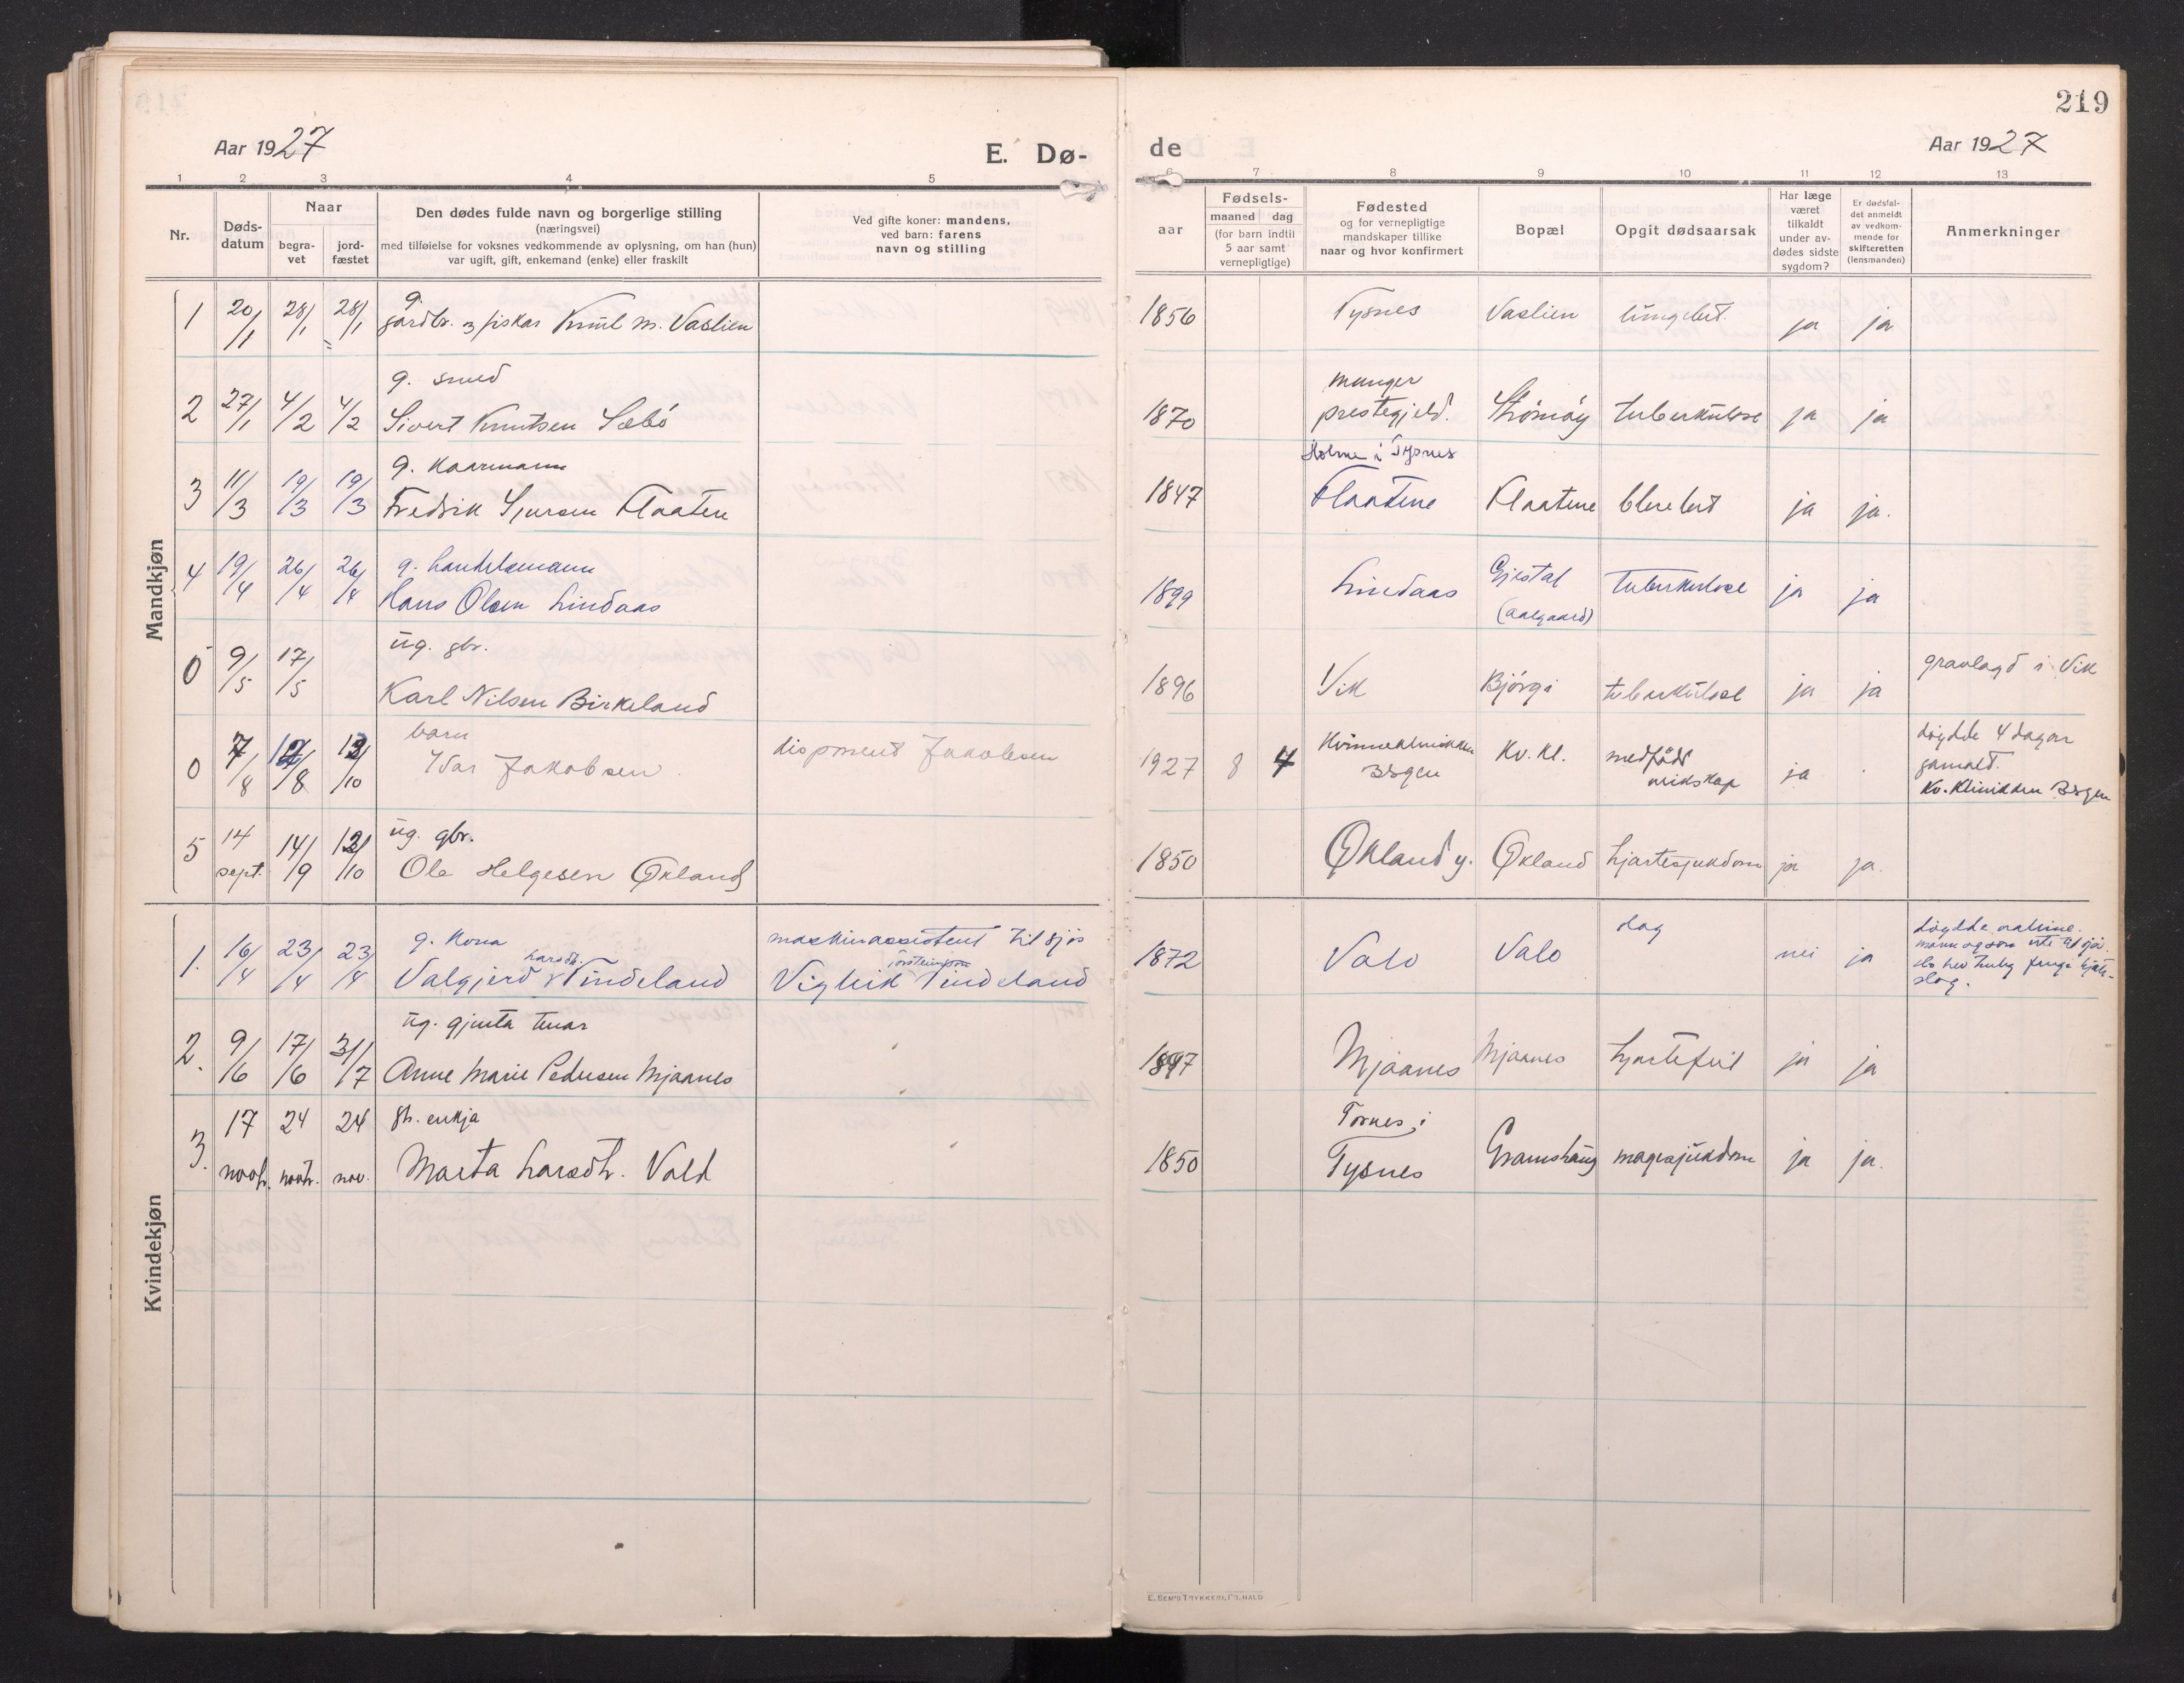 219
Aar 1927
E. Dø-
de
Aar 1927
1 2 3 4 5 6 7 8 9 10 11 12 13
Nr.
Døds-
datum
Naar
begra-
vet
jord-
fæstet
Den dødes fulde navn og borgerlige stilling
(næringsvei)
med tilføielse for voksnes vedkommende av oplysning, om han (hun)
var ugift, gift, enkemand (enke) eller fraskilt
Ved gifte koner: mandens,
ved barn: farens
navn og stilling
aar
Fødsels-
maaned dag
(for barn indtil
5 aar samt
vernepligtige)
Fødested
og for vernepligtige
mandskaper tillike
naar og hvor konfirmert
Bopæl
Opgit dødsaarsak
Har læge
været
tilkaldt
under av-
dødes sidste
sygdom?
Er dødsfal-
det anmeldt
av vedkom-
mende for
skifteretten
(lensmanden)
Anmerkninger
Mandkjøn
g.
1 20/1 28/1 28/1 gardbr. og fiskar Knut M. Vaslien 1856 Tysnes Vaslien lungebet. ja ja
g. smed
2 27/1 4/2 4/2 Sivert Knutsen Sæbö 1870 Manger
prestegjeld. Strömöy tuberkulose ja ja
g. kaarmann
3 11/3 19/3 19/3 Fredrik Sjursen Flaaten 1847 Holme i Tysnes
Flaatene Flaatene ja ja.
g. handelsmann
4 19/4 26/4 26/4 Hans Olsen Lindaas 1899 Lindaas Gjestal
(Aalgaard) tuberkulose ja ja
ug. gbr.
0 9/5 17/5 Karl Nilsen Birkeland 1896 Vik Bjørgi tuberkulose ja ja gravlagd i Vik
barn
0 7/8 12/8 12/10 Ivar Jakobsen. disponent Jakobsen 1927 8 4 Kvinneklinikken
Bergen Kv. Kl. medfödt
veikskap ja . döydde 4 dagar
gamalt.
Kv. Klinikken Bergen
ug. gbr.
5 14
sept. 14/9 12/10 Ole Helgesen Økland 1850 Økland y. Økland hjartesjukdom ja ja.
Kvindekjøn
g. kona
1. 16/4 23/4 23/4 Valgjerd Larsdt. Vindeland maskinassistent til sjös
Vigleik Vindeland 1872 Valo Valo slag nei ja döydde
mann og son ute til sjös.
slag.
ug. gjenta tenar
2. 9/6 17/6 3/7 Anne Marie Pedersen Mjaanes 1897 Mjaanes Mjaanes hjartefeil ja ja
gh. enkja
3. 17
novb. 24
novb. 24
nov. Marta Larsdt. Vald 1850 Tornes i
Tysnes Gramshaug magesjukdom ja ja.
E. SEM'S TRYKKERI, FR.HALD